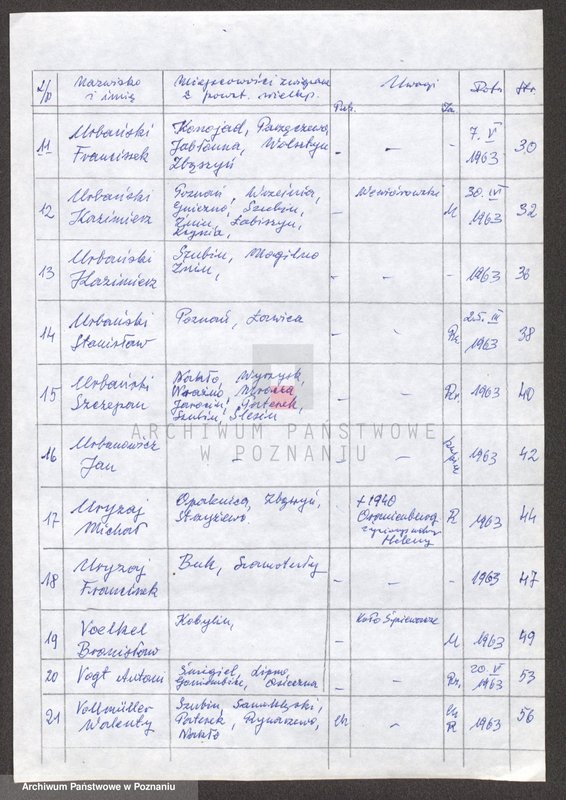 L/p Nazwisko i imię Miejscowości związane z powst. wielkp. Uwagi Data Str
11 Urbański Franciszek Konojad, Parzęczewo, Jabłonna, Wolsztyn Zbąszyń - - - 7. VI 1963 30
12 Urbański Kazimierz Poznań, Września, Gniezno, Szubin, Żnin, Łabiszyn, Kcynia, - Węwiórowski M 30. IV 1963 32
13 Urbański Kazimierz Szubin, Mogilno Żnin, - - - 1963 36
14 Urbański Stanisław Poznań, Ławica - - R. 25. III 1963 38
15 Urbański Szczepan Nakło, Wyrzysk, Mrocza Jarocin, Porterek, Szubin, Ślesin - - R. 1963 40
16 Urbanowicz Jan - - 1963 42
17 Uryzaj Michał Opalenica, Zbąszyń, - +1940 Oranienburg Heleny R 1963 44
18 Uryzaj Franciszek Buk, Szamotuły - - - 1963 47
19 Voelkel Bronisław Kobylin, - Koło Śpiewacze M 1963 49
20 Vogt Antoni Śmigiel, Lipno, Osieczna - - R. 20. VI 1963 53
21 Vollmüller Walenty Szubin, Samoklęski, Porterek, Rynarzewo, Nakło - R 1963 56
ARCHIWUM PAŃSTWOWE
W POZNANIU
Archiwum Państwowe w Poznaniu